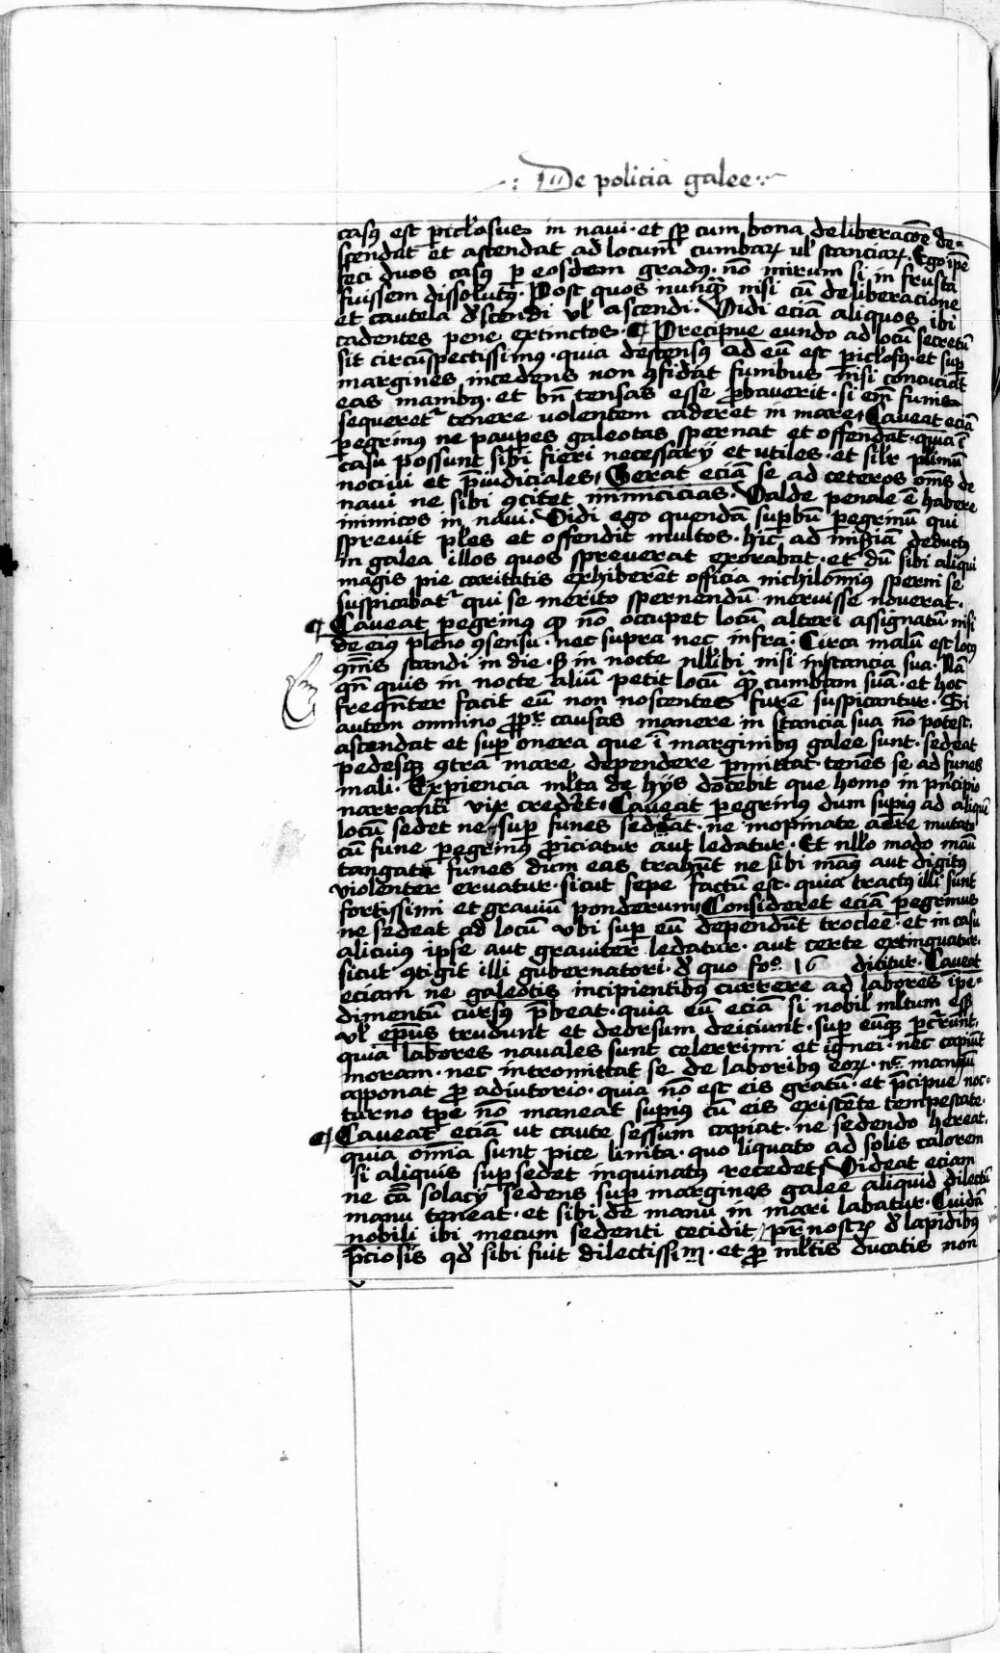 De policia galee
casꝯ est pic̄losus in navi · et sꝑ cum bona deliberacōe de-
scendat et ascendat ad locum cumbaꝝ ul̄ stanciaꝝ · Ego ip̄e
feci duos casꝯ ꝑ eosdem gradꝯ · nō mirum si in frusta
fuissem dissolutꝯ · Post quos nunqꝫ nisi cū deliberacione
et cautela d̄scendi vl̄ ascendi · Vidi eciā aliquos ibi
cadentes pene extinctos · ¶ Precipue eundo ad locū secretū
sit circūspectissimꝯ · quia descensꝯ ad eū est pic̄losꝯ · et suꝑ
margines incedens non ꝯfidat funibus nisi concuciat
eas manibꝯ · et bn̄ tensas esse ꝓbaverit · si em̄ funis
sequeretᷣ tenere volentem caderet in mare · Caveat eciā
pegrinꝯ ne paupes galeotas spernat et offendat · quia ī
casu possunt sibi fieri necessarij et utiles · et sil̄r plimū
nocivi et p̄iudiciales · Gerat eciā se ad ceteros om̄s de
navi ne sibi ꝯcitet inimicicias · Valde penale ē habere
inimicos in navi · Vidi ego quendā supbū pegrinū qui
sprevit pl̄es et offendit multos · hic ad mis̄iam deductꝯ
in galea illos quos spreverat exorabat · et dū sibi aliqui
magis pie caritatis exhiberēt officia nichilominꝯ sperni se
suspicabatᷣ qui se merito spernendū meruisse noverat ·
¶ Caveat pegrinꝯ qꝫ nō occupet locū alteri assignatū nisi
de eiꝯ pleno ꝯsensu · nec supra nec infra · Circa malū est locꝯ
ꝯīs standi in die · s̄ in nocte nllibi nisi in stancia sua · Nā
qn̄ quis in nocte aliū petit locū qꝫ cumbam suā · et hoc
freqn̄ter facit eū non noscentes furē suspicantur · Si
autem omnino ꝓpᷣ causas manere in stancia sua nō potest ·
ascendat et suꝑ onera que ī marginibꝯ galee sunt · sedeat
pedesqꝫ ꝯtra mare dependere ꝑmittat tenēs se ad funes
mali · Expiencia ml̄ta de hijs docebit que homo in pͥncipio
narranti vix crederet · Caveat pegrinꝯ dum supiꝯ ad aliquē
locū sedet ne suꝑ funes sedeat · ne inopinate aere mutato
cū fune pegrinꝯ ꝓiciatur aut ledatur · Et nllo modo manu
tangat funes dum eas trahūt ne sibi manꝯ aut digitꝯ
violenter eruatur · sicut sepe factū est · quia tractꝯ illi sunt
fortissimi et graviū ponderum · Consideret eciā pegrinus
ne sedeat ad locū vbi suꝑ eū dependūt troclee · et in casu
alicuius ipse aut graviter ledatur · aut certe extinguatur ·
sicut ꝯtigit illi gubernatori · d̄ quo fo · 16 dicitur · Caveat
eciam ne galeotis incipientibꝯ currere ad labores īpe-
dimentū cursꝯ p̄beat · quia eū eciā si nobil̄ ml̄tum ess̄
vl̄ ep̄us trudunt et deorsum deiciunt · suꝑ eūqꝫ pcurrūt ·
quia labores navales sunt celerrimi et ignei · nec capiūt
moram · nec intromittat se de laboribꝯ eoꝝ · nc̄ manum
apponat ꝓ adiutorio · quia nō est eis gratū · et p̄cipue noc-
turno tp̄e nō maneat supiꝯ cū eis existēte tempestate ·
¶ Caveat eciā ut caute sessum capiat · ne sedendo hereat ·
quia om̄ia sunt pice linita · quo liquato ad solis calorem
si aliquis supsedet inquinatꝯ recedet · Videat eciam
ne cā solacij sedens suꝑ margines galee aliquid dilectū
manu teneat · et sibi de manu in mari labatur · Cuidā
nobili ibi mecum sedenti cecidit pr̄ nostꝝ d̄ lapidibꝯ
p̄ciosis qd̄ sibi fuit dilectissim · et ꝓ ml̄tis ducatis non